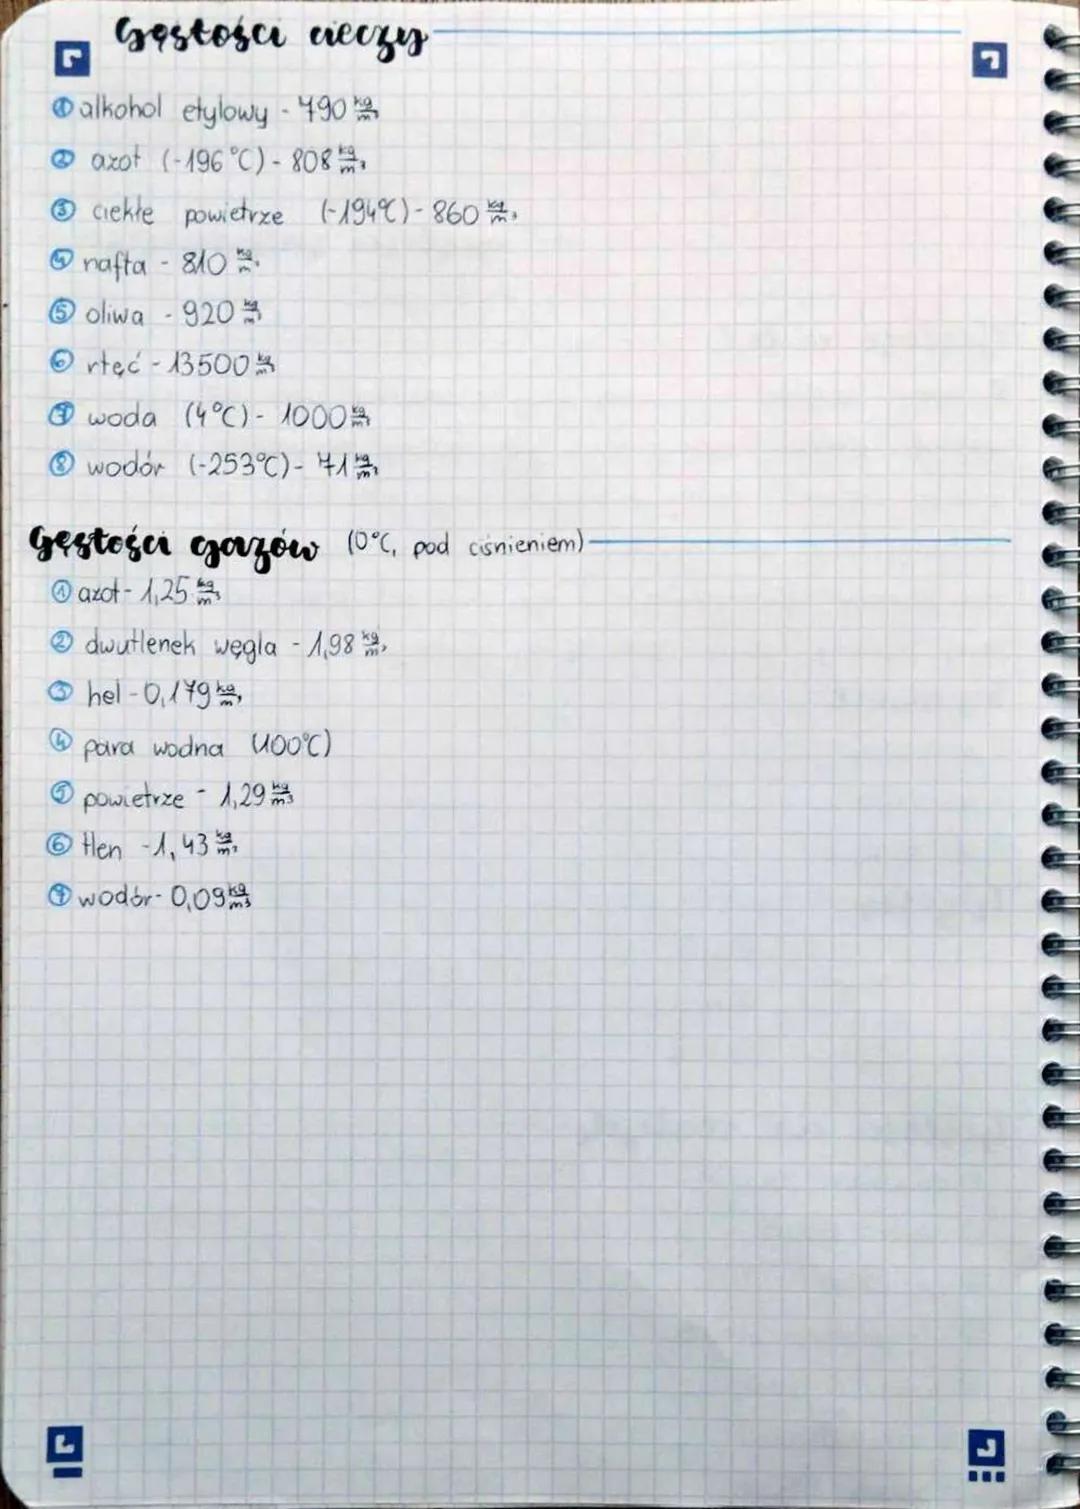 Gęstości cieczy
① alkohol etylowy - 790 kg/m³
② azot (-196°C) - 808 kg/m³
③ ciekłe powietrze (-194°C) - 860 kg/m³
④ nafta - 810 kg/m³
⑤ oliwa - 920 kg/m³
⑥ rtęć - 13500 kg/m³
⑦ woda (4°C) - 1000 kg/m³
⑧ wodór (-253°C) - 71 kg/m³
Gęstości gazów (0°C, pod ciśnieniem)
① azot - 1,25 kg/m³
② dwutlenek węgla - 1,98 kg/m³
③ hel - 0,179 kg/m³
④ para wodna (100°C)
⑤ powietrze - 1,29 kg/m³
⑥ tlen - 1,43 kg/m³
⑦ wodór - 0,09 kg/m³